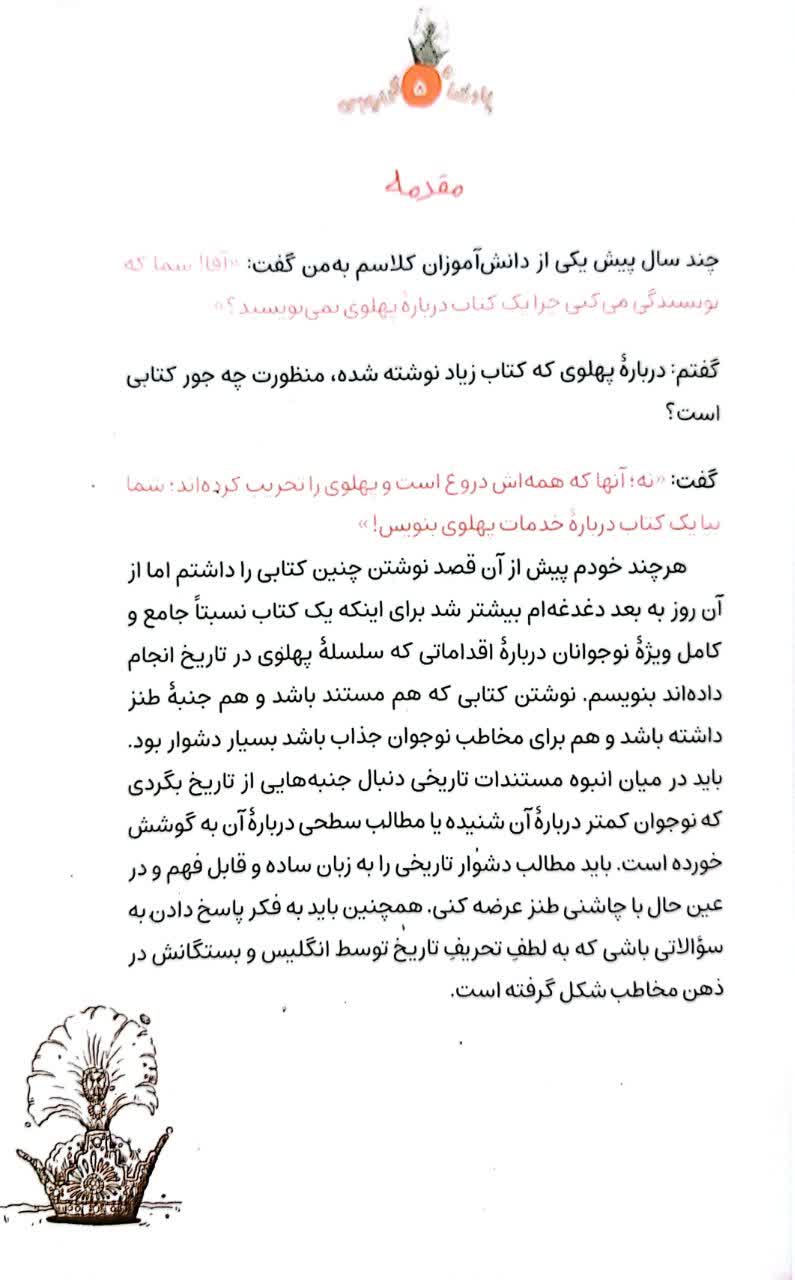 ۵
مقدمه
چند سال پیش یکی از دانش‌آموزان کلاسم به‌من گفت: «آقا! شما که
نویسندگی می‌کنی چرا یک کتاب دربارهٔ پهلوی نمی‌نویسید؟»
گفتم: دربارهٔ پهلوی که کتاب زیاد نوشته شده، منظورت چه جور کتابی
است؟
گفت: «نه؛ آنها که همه‌اش دروغ است و پهلوی را تخریب کرده‌اند؛ شما
بیا یک کتاب دربارهٔ خدمات پهلوی بنویس!»
هرچند خودم پیش از آن قصد نوشتن چنین کتابی را داشتم اما از
آن روز به بعد دغدغه‌ام بیشتر شد برای اینکه یک کتاب نسبتاً جامع و
کامل ویژهٔ نوجوانان دربارهٔ اقداماتی که سلسلهٔ پهلوی در تاریخ انجام
داده‌اند بنویسم. نوشتن کتابی که هم مستند باشد و هم جنبهٔ طنز
داشته باشد و هم برای مخاطب نوجوان جذاب باشد بسیار دشوار بود.
باید در میان انبوه مستندات تاریخی دنبال جنبه‌هایی از تاریخ بگردی
که نوجوان کمتر دربارهٔ آن شنیده یا مطالب سطحی دربارهٔ آن به گوشش
خورده است. باید مطالب دشوار تاریخی را به زبان ساده و قابل فهم و در
عین حال با چاشنی طنز عرضه کنی. همچنین باید به فکر پاسخ دادن به
سؤالاتی باشی که به لطفِ تحریفِ تاریخ توسط انگلیس و بستگانش در
ذهن مخاطب شکل گرفته است.